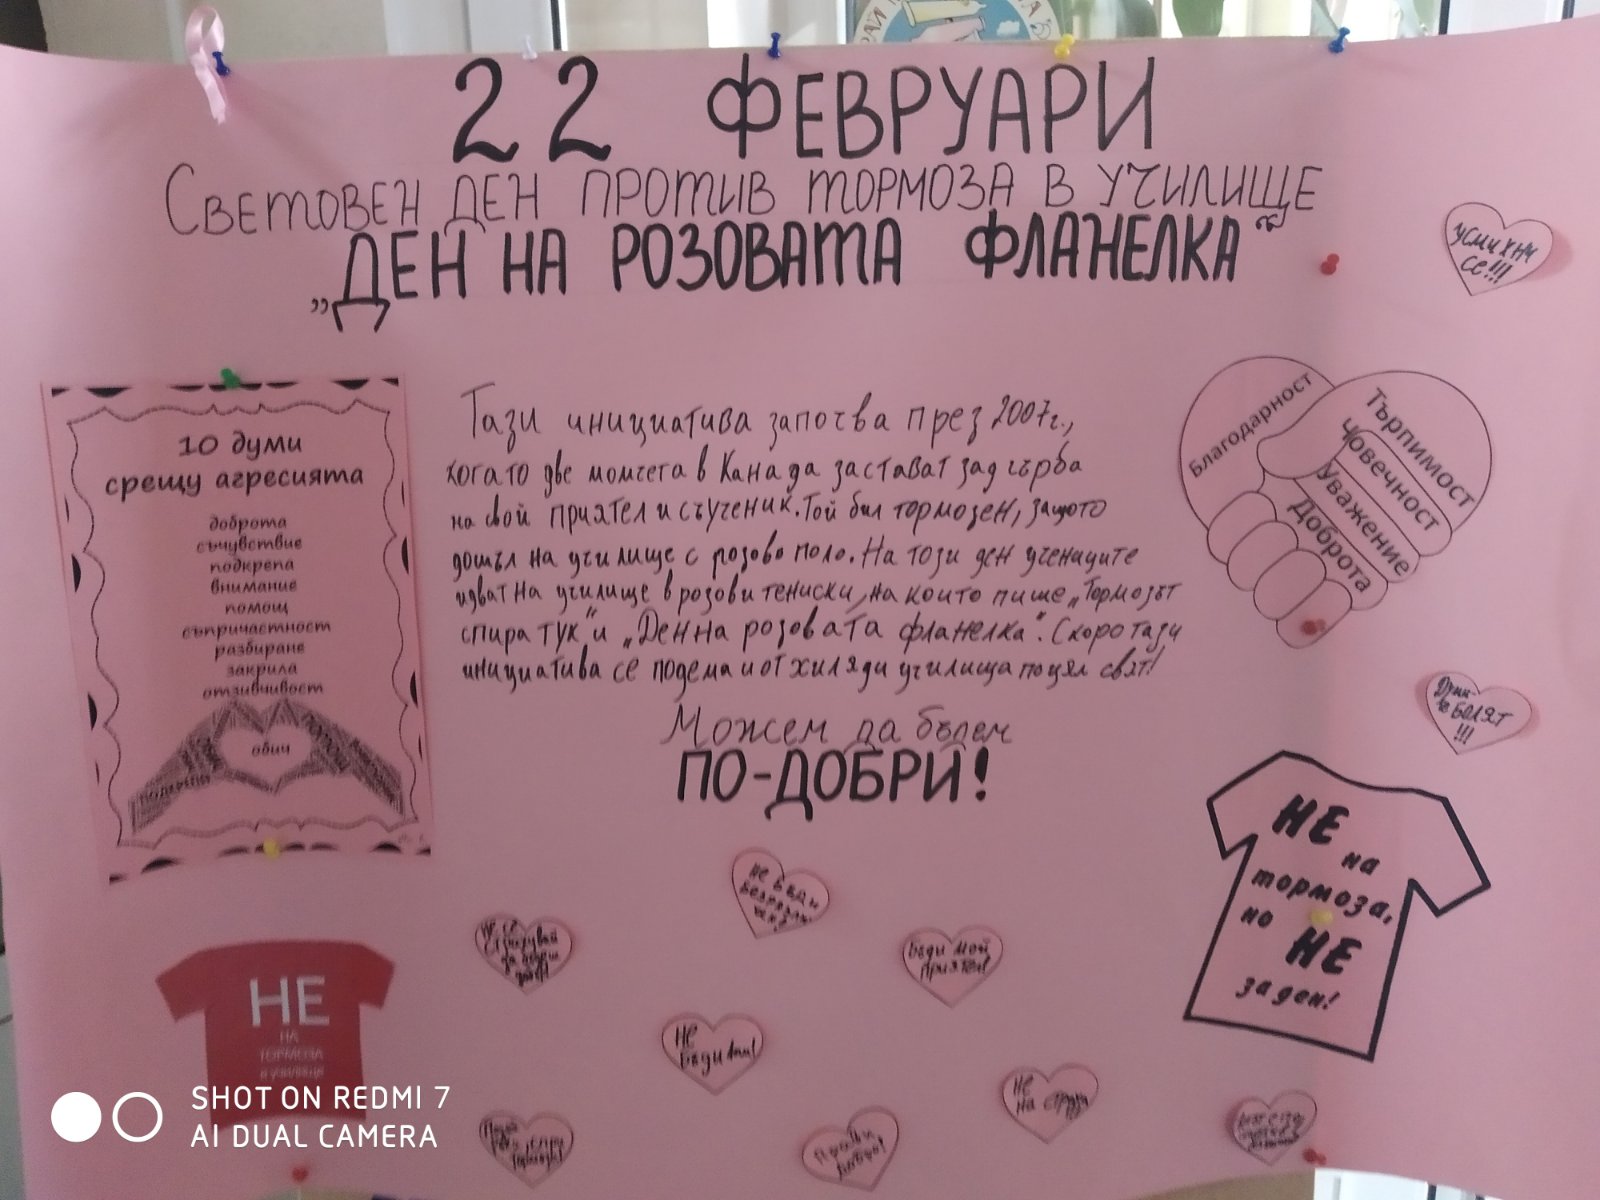 22 ФЕВРУАРИ
СВЕТОВЕН ДЕН ПРОТИВ ТОРМОЗА В УЧИЛИЩЕ
„ДЕН НА РОЗОВАТА ФЛАНЕЛКА“
усмихни
се!!!
10 думи
срещу агресията
доброта
съчувствие
подкрепа
внимание
помощ
съпричастност
разбиране
закрила
отзивчивост
обич
подкрепа
Тази инициатива започва през 2007г.,
когато две момчета в Канада застават зад гърба
на свой приятел и съученик. Той бил тормозен, защото
дошъл на училище с розово поло. На този ден учениците
идват на училище в розови тениски, на които пише „Тормозът
спира тук“ и „Ден на розовата фланелка“. Скоро тази
инициатива се подема и от хиляди училища по цял свят!
Можем да бъдем
ПО-ДОБРИ!
Благодарност
Търпимост
Човечност
Уважение
Доброта
Думи-
те БОЛЯТ
!!!
НЕ
на
тормоза,
но НЕ
за ден!
НЕ
НА
ТОРМОЗА
в училище
не бъди
бъди мой
приятел!
не
бъди
НЕ
на страха
Прави
добро!
SHOT ON REDMI 7
AI DUAL CAMERA